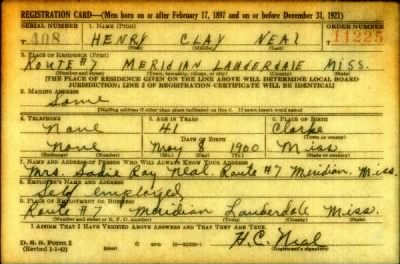 REGISTRATION CARD—(Men born on or after February 17, 1897 and on or before December 31, 1921)
SERIAL NUMBER 1. NAME (Print) ORDER NUMBER
T 408 HENRY CLAY NEAL 11225
(First) (Middle) (Last)
2. PLACE OF RESIDENCE (Print)
ROUTE #7 MERIDIAN LAUDERDALE MISS.
(Number and street) (Town, township, village, or city) (County) (State)
[THE PLACE OF RESIDENCE GIVEN ON THE LINE ABOVE WILL DETERMINE LOCAL BOARD
JURISDICTION; LINE 2 OF REGISTRATION CERTIFICATE WILL BE IDENTICAL]
3. MAILING ADDRESS
Same
[Mailing address if other than place indicated on line 2. If same insert word same]
4. TELEPHONE 5. AGE IN YEARS 6. PLACE OF BIRTH
None 41 Clarke
DATE OF BIRTH (Town or county)
None May 8 1900 Miss
(Mo.) (Day) (Yr.) (State or country)
7. NAME AND ADDRESS OF PERSON WHO WILL ALWAYS KNOW YOUR ADDRESS
Mrs. Sadie Ray Neal, Route #7 Meridian, Miss.
8. EMPLOYER'S NAME AND ADDRESS
Self employed
9. PLACE OF EMPLOYMENT OR BUSINESS
Route #7 Meridian Lauderdale Miss.
(Number and street or R. F. D. number) (Town) (County) (State)
I AFFIRM THAT I HAVE VERIFIED ABOVE ANSWERS AND THAT THEY ARE TRUE.
D. S. S. Form 1 H.C. Neal
(Revised 1-1-42) (Registrant's signature)